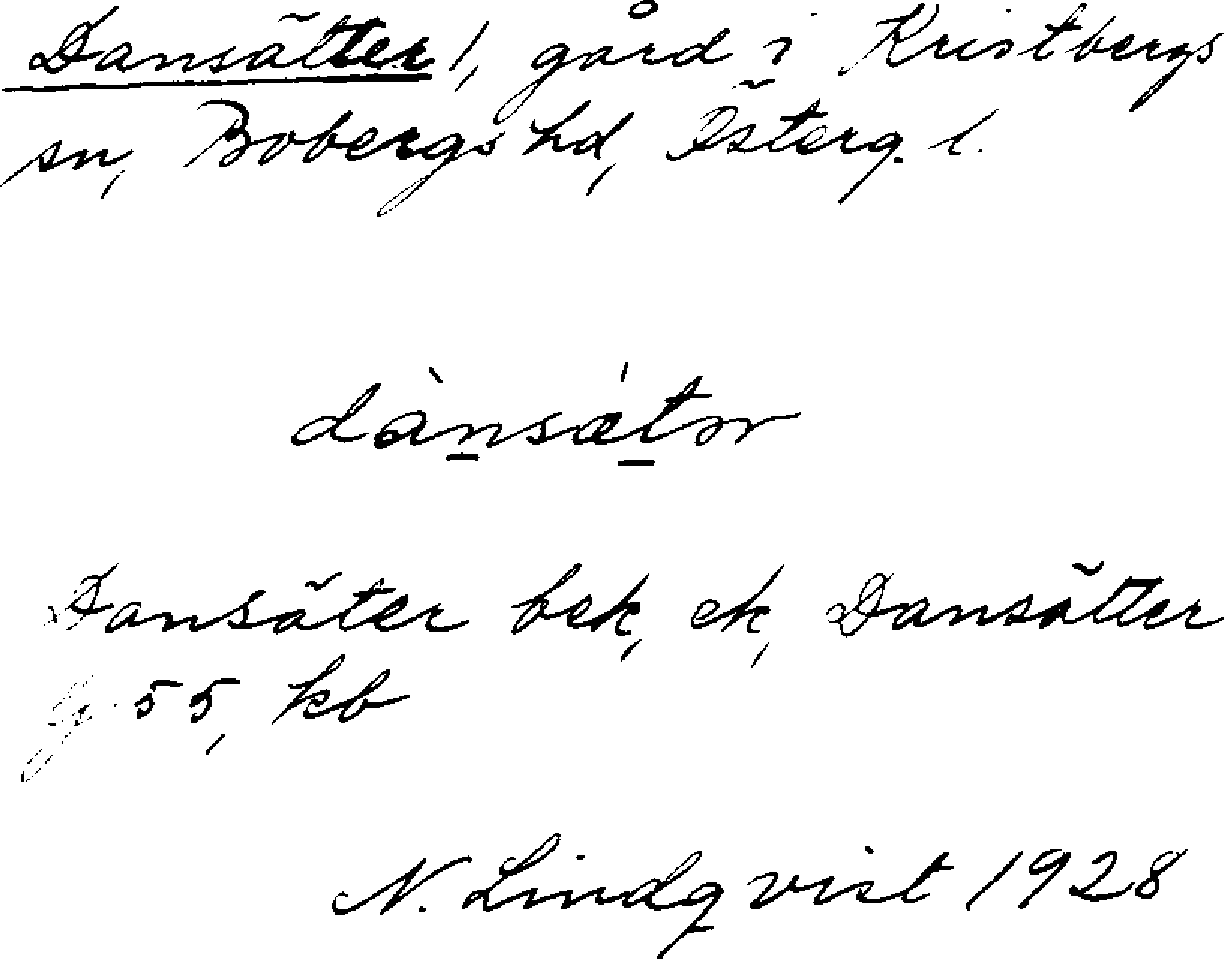 Dansätter 1, gård i Kristbergs
sn, Bobergs hd, Österg. l.
dànsǽtər
Dansäter bek, ek, Dansätter
55, kb
N. Lindqvist 1928